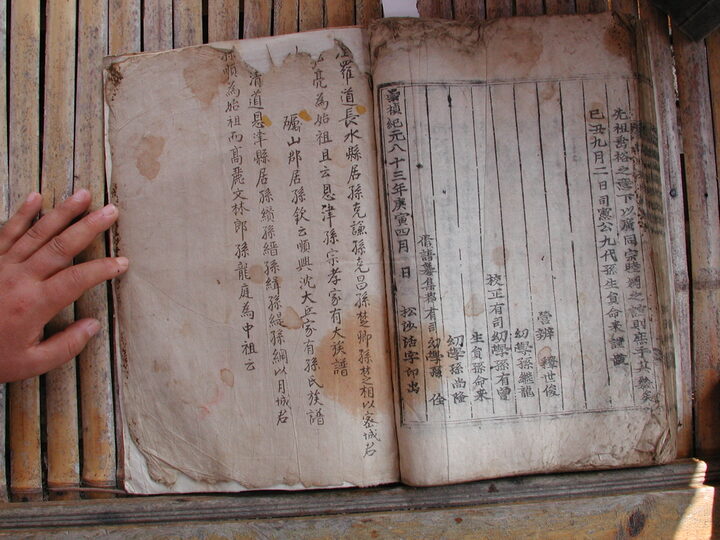 先祖裕之澤下以篤同宗睦之誼則庶乎其幾矣
己丑九月二日司憲公九代孫生員命來謹識
營辦 釋世俊
幼學孫繼龍
校正有司幼學孫有曾
生員孫命來
幼學孫尚隆
脩譜募集都有司幼學孫 佺
崇禎紀元八十三年庚寅四月 日 松沙活字印出
羅道長水縣居孫克謙孫克昌孫楚卿孫楚相以密城君
亮為始祖且云恩津孫宗孝家有大族譜
礪山郡居孫欽云順興沈大丘家有孫氏族譜
清道恩津縣居孫纘孫縉孫緝孫綎孫綱以月城君
孫順為始祖而高麗文林郎孫龍庭為中祖云